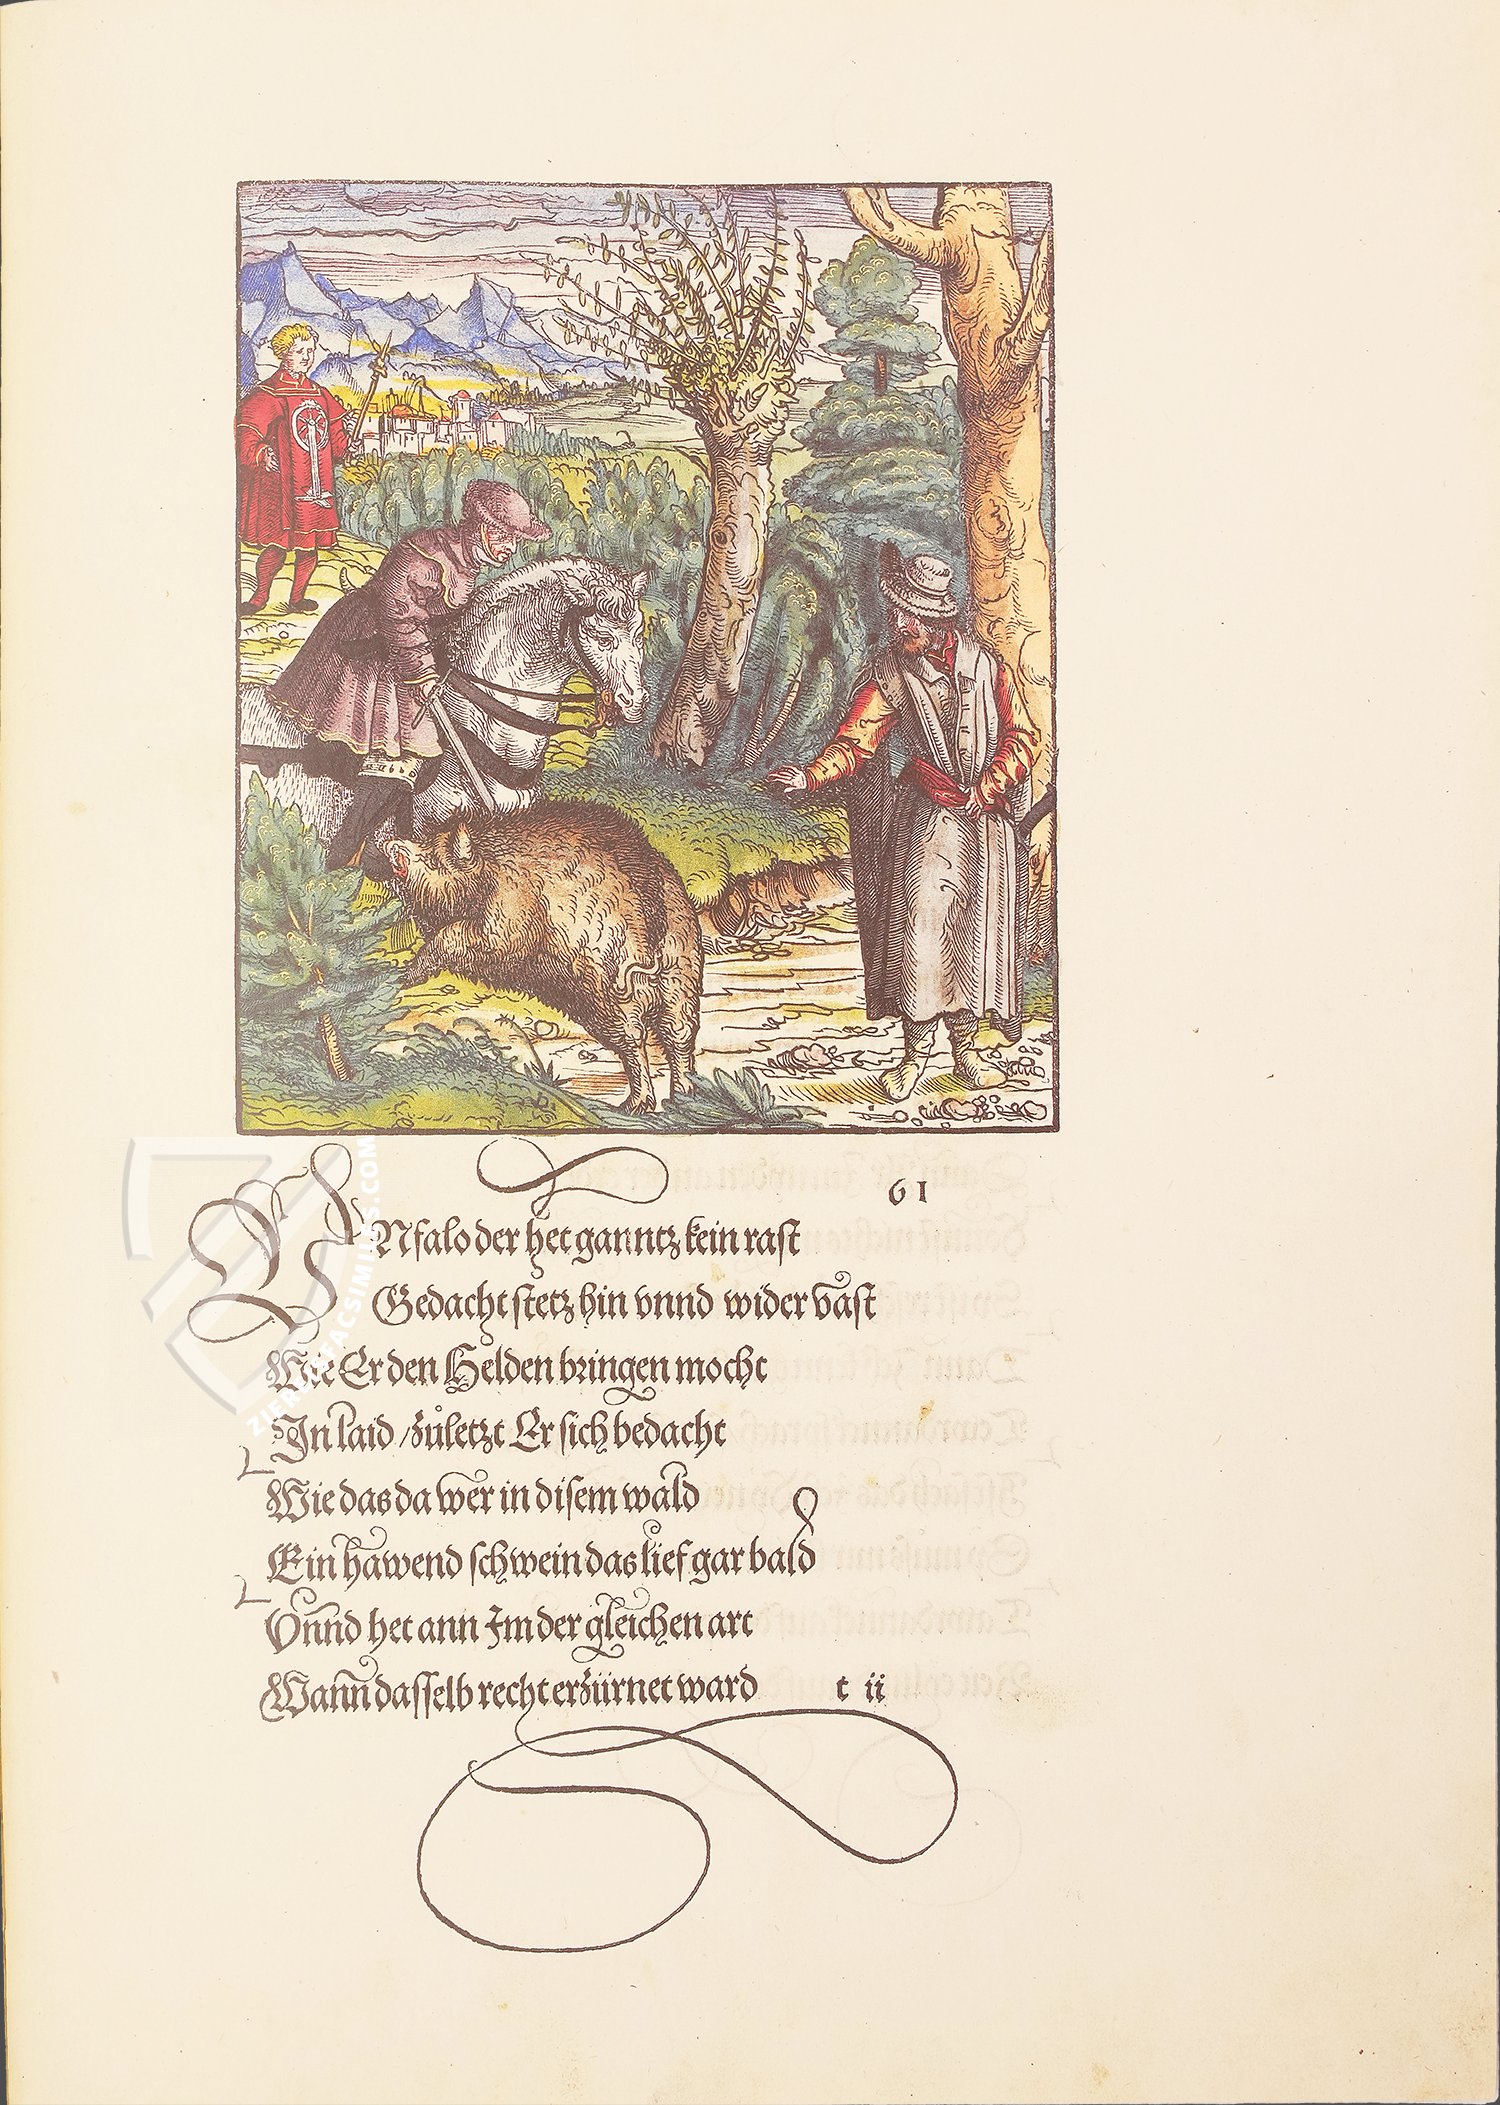 61
VNfalo der het ganntz kein rast
Gedacht stetz hin vnnd wider vast
Wie Er den Helden bringen mocht
In laid / zůletzt Er sich bedacht
Wie das da wer in disem wald
Ein hawend schwein das lief gar bald
Vnnd het ann Im der gleichen art
Wann dasselb recht erzürnet ward t ii